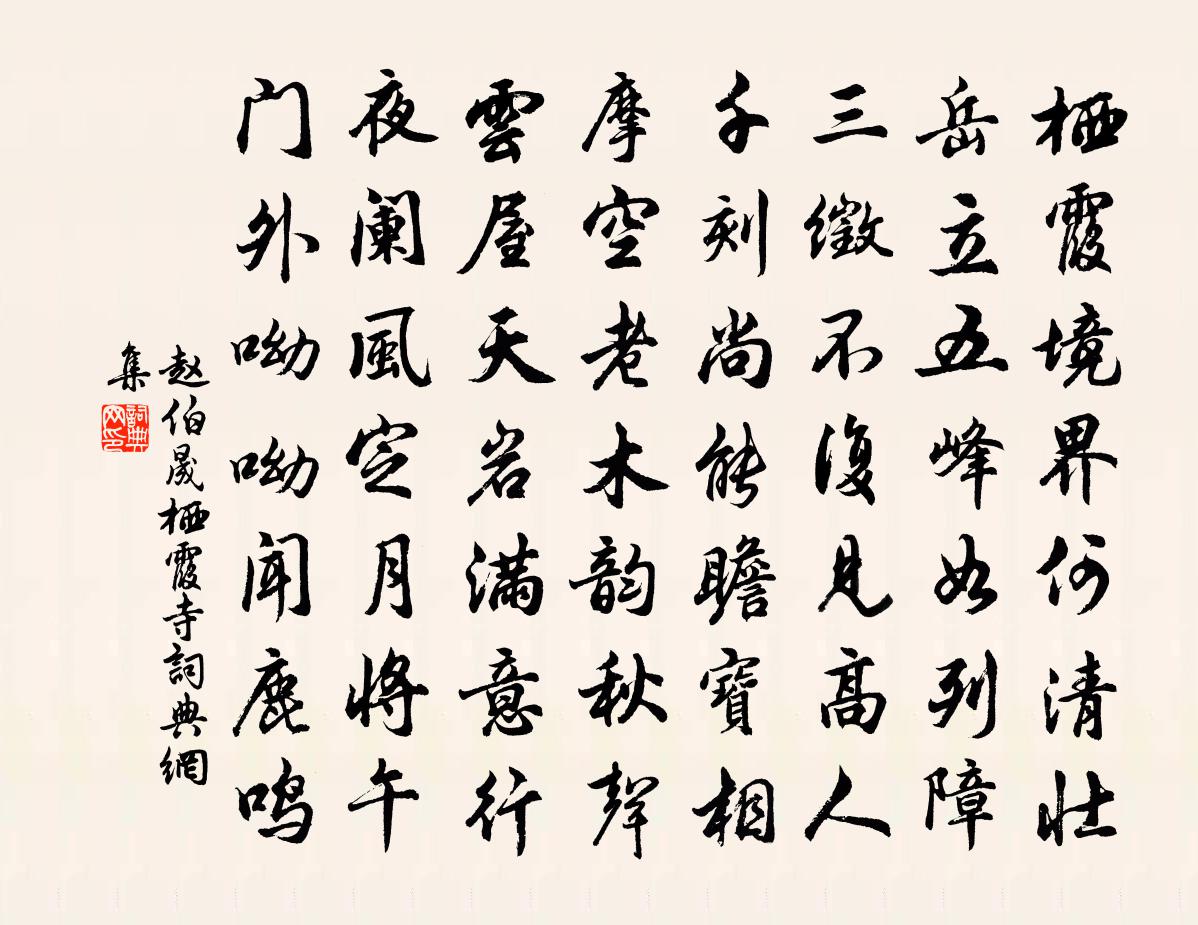 栖霞境界何清壮
岳立五峰如列障
三徵不復見高人
千刻尚能瞻寶相
摩空老木韵秋聲
雲屋天岩满意行
夜阑風定月將午
门外呦呦闻鹿鸣
赵伯晟栖霞寺詞典網
集
詞典网印